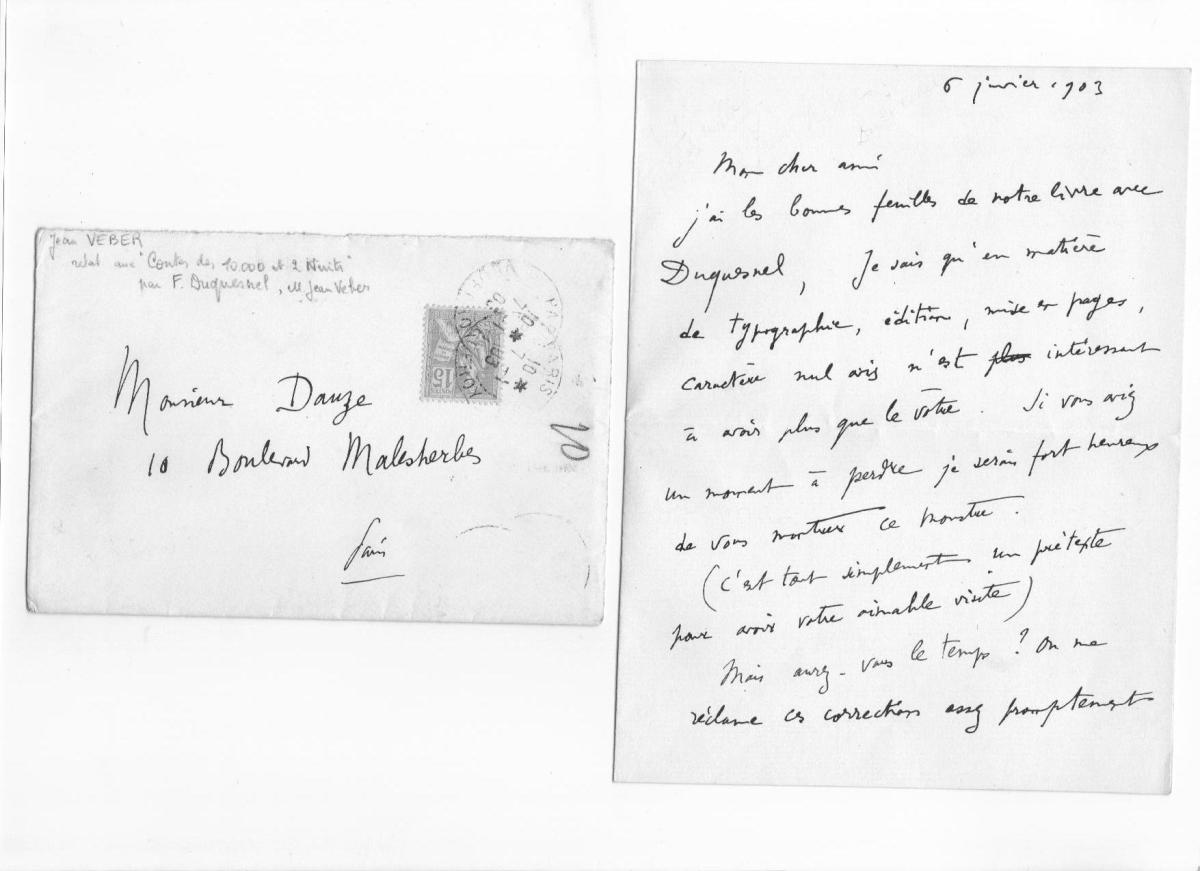 Jean VEBER
relat aux "Contes des 10.000 et 2 Nuits"
par F. Duquesnel, ill Jean Veber
PARIS
15
10
Monsieur Dauze
10 Boulevard Malesherbes
Paris
6 janvier 1903
Mon cher ami
j'ai les bonnes feuilles de notre livre avec
Duquesnel, Je sais qu'en matière
de typographie, édition, mise en pages,
caractère nul avis n'est plus intéressant
à avoir plus que le vôtre. Si vous aviez
un moment à perdre je serais fort heureux
de vous montrer ce monstre.
(c'est tout simplement un prétexte
pour avoir votre aimable visite)
Mais aurez-vous le temps ? On me
réclame ces corrections assez promptement